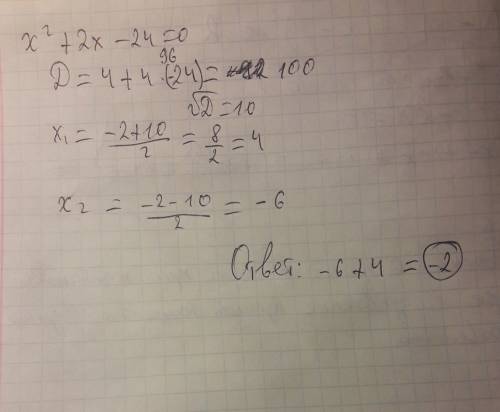 x² + 2x - 24 = 0
96
D = 4 + 4·(-24) = 100
√D = 10
x₁ = (-2+10)/2 = 8/2 = 4
x₂ = (-2-10)/2 = -6
Ответ: -6+4 = -2